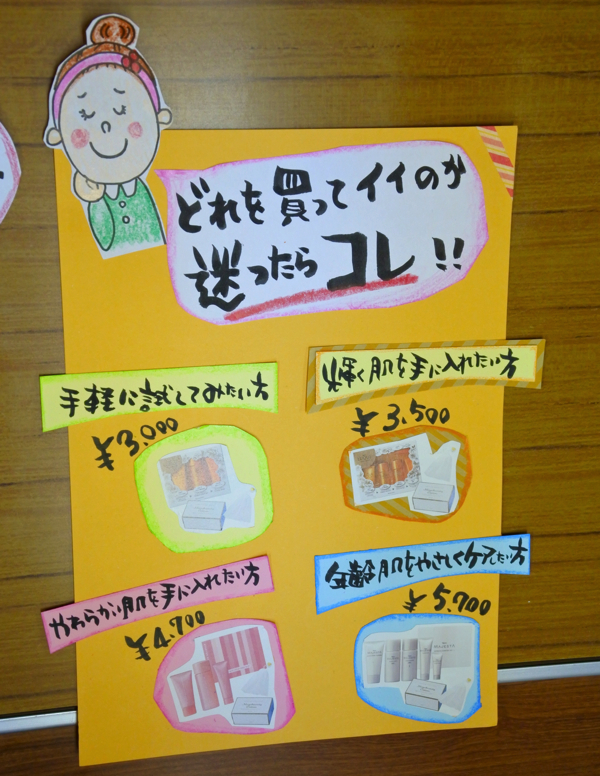 どれを買ってイイのか
迷ったら コレ!!
手軽に試してみたい方
¥3,000
輝く肌を手に入れたい方
¥3,500
やわらかい肌を手に入れたい方
¥4,700
年齢肌をやさしくケアしたい方
¥5,700